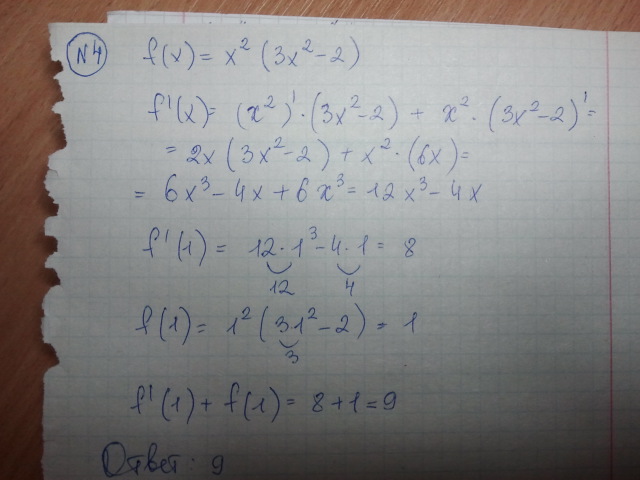 N4 f(x) = x² (3x² - 2)
f'(x) = (x²)' · (3x² - 2) + x² · (3x² - 2)' =
= 2x (3x² - 2) + x² · (6x) =
= 6x³ - 4x + 6x³ = 12x³ - 4x
f'(1) = 12 · 1³ - 4 · 1 = 8
12 4
f(1) = 1² (3·1² - 2) = 1
3
f'(1) + f(1) = 8 + 1 = 9
Ответ: 9